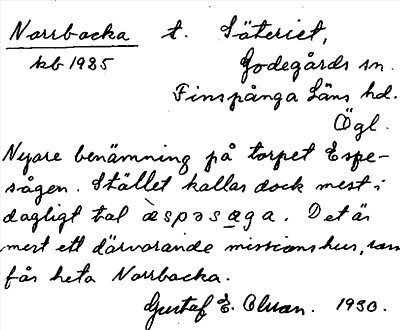 Norrbacka t. Säteriet,
kb 1985 Godegårds sn.
Finspånga Läns hd.
Ögl.
Nyare benämning på torpet Espe-
sågen. Stället kallas dock mest i
dagligt tal àspəsæga. Det är
mest ett därvarande missionshus, som
får heta Norrbacka.
Gustaf E. Olsson. 1930.